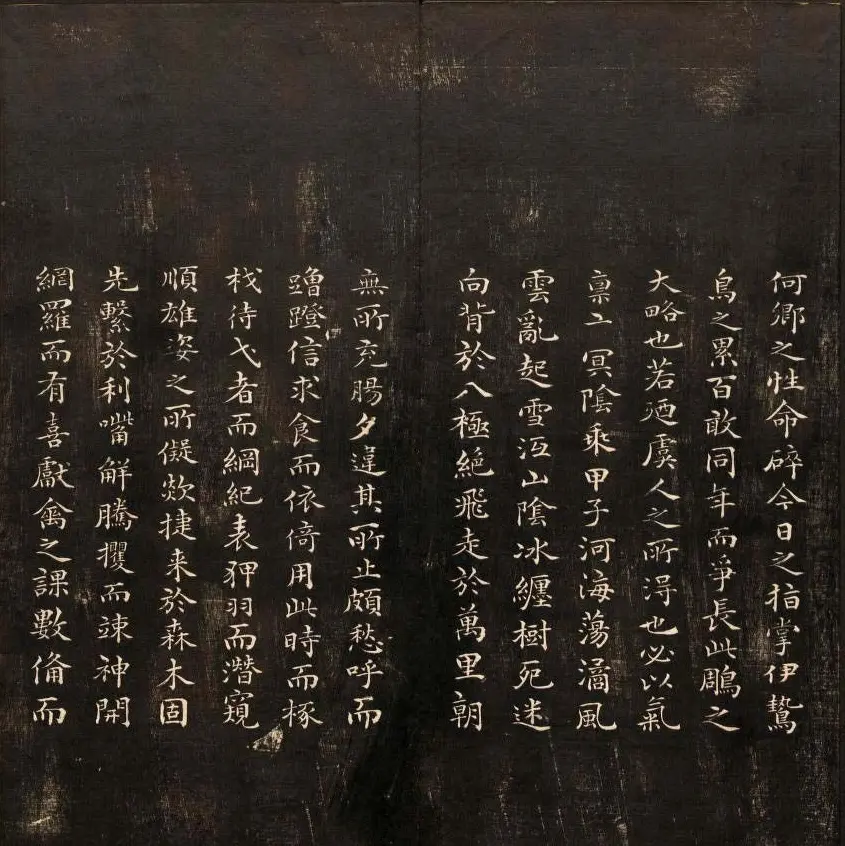 何鄉之性命碎今日之指掌伊鷙
鳥之累百敢同年而爭長此鵰之
大略也若廼虞人之所得也必以氣
禀玄冥陰乘甲子河海蕩潏風
雲亂起雪沍山陰冰纏樹死迷
向背於八極絶飛走於萬里朝
無所充腸夕違其所止頗愁呼而
蹭蹬信求食而依倚用此時而椓
杙待弋者而綱紀表狎羽而潛窺
順雄姿之所儗欻捷来於森木固
先繫於利嘴解騰攫而竦神開
網羅而有喜獻禽之課數俻而